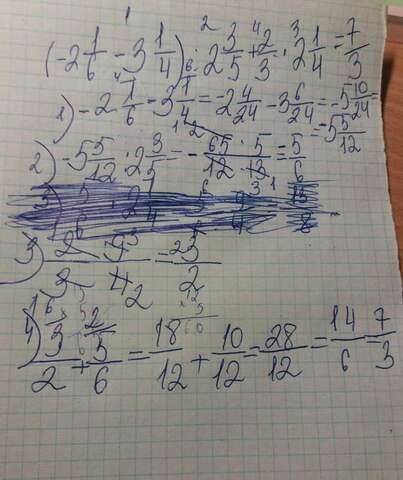 1 2 4 3
(-2 1/6 - 3 1/4) : 2 3/5 + 2/3 · 2 1/4 = 7/3
1) -2 1/6 - 3 1/4 = -2 4/24 - 3 6/24 = -5 10/24 =
= -5 5/12
2) -5 5/12 : 2 3/5 = - 65 · 5 / 12 · 13 = 5/6
3) 2 · 9 / 3 · 4 = 3/2
4) 3/2 + 5/6 = 18/12 + 10/12 = 28/12 = 14/6 = 7/3